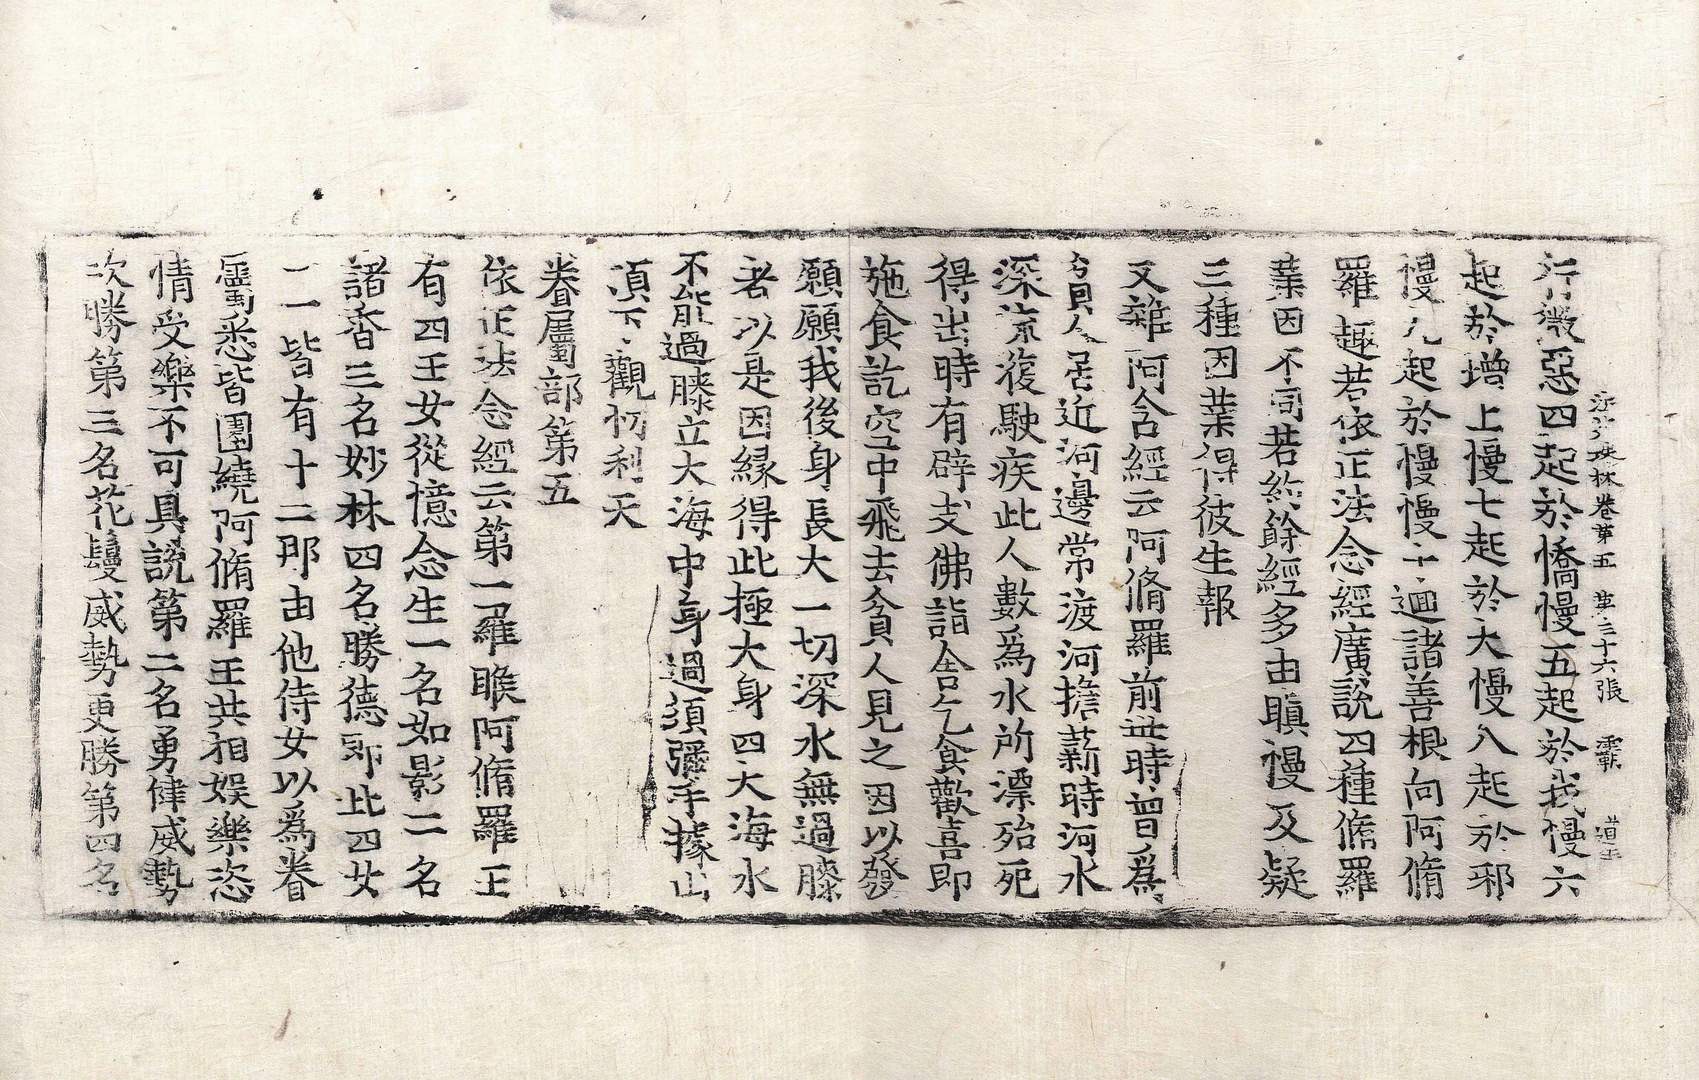 法苑珠林卷第五 第三十六張 覇
行微惡四起於憍慢五起於我慢六
起於增上慢七起於大慢八起於邪
慢九起於慢慢十迴諸善根向阿脩
羅趣若依正法念經廣說四種脩羅
業因不同若約餘經多由瞋慢及疑
三種因業得彼生報
又雜阿含經云阿脩羅前世時曾爲
貧人居近河邊常渡河擔薪時河水
深流復駛疾此人數爲水所漂殆死
得出時有辟支佛詣舍乞食歡喜即
施食訖空中飛去貧人見之因以發
願願我後身長大一切深水無過膝
者以是因緣得此極大身四大海水
不能過膝立大海中身過須彌手據山
頂下觀忉利天
眷屬部第五
依正法念經云第一羅睺阿脩羅王
有四王女從憶念生一名如影二名
諸香三名妙林四名勝德即此四女
一一皆有十二那由他侍女以爲眷
屬悉皆圍繞阿脩羅王共相娛樂恣
情受樂不可具說第二名勇健威勢
次勝第三名花鬘威勢更勝第四名